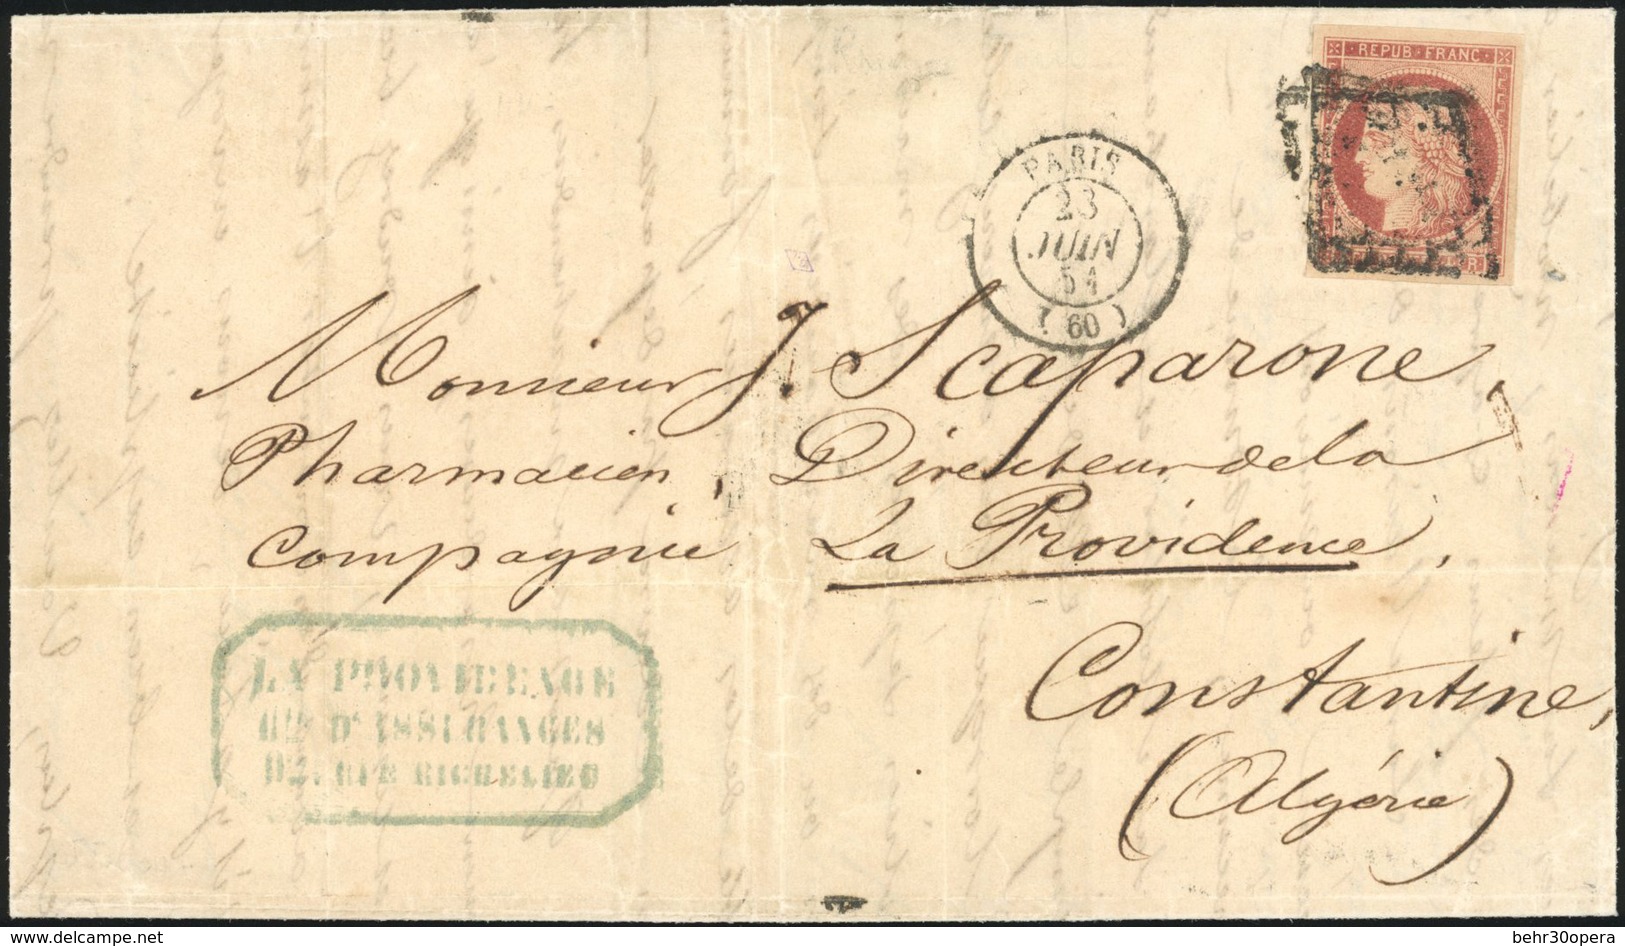 REPUB·FRANC·
PARIS
23
JUIN
51
(60)
Monsieur J. Scaparone,
Pharmacien, Directeur de la
Compagnie La Providence,
Constantine,
(Algérie)
LA PROVIDENCE
CIE D'ASSURANCES
RUE RICHELIEU
delcampe.net
behr30opera